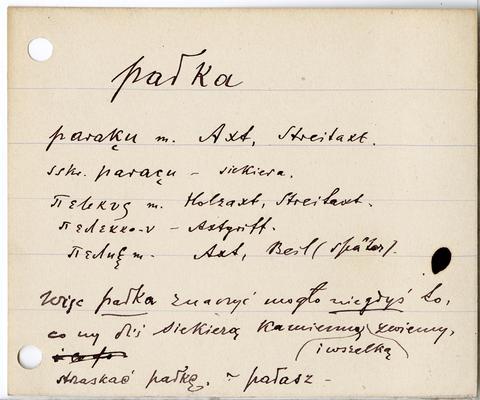 pałka
parakụ m. Axt, Streitaxt.
sskr. paraçu - siekiera.
πελεκυς m. Holzaxt, Streitaxt.
πελεκκο-ν - Axtgriff.
m. Axt, Beil (später).
Więc pałka znaczyć mogło niegdyś to,
co my dziś siekierą kamienną zwiemy,
i wszelką
strzaskać pałkę. ~ pałasz -